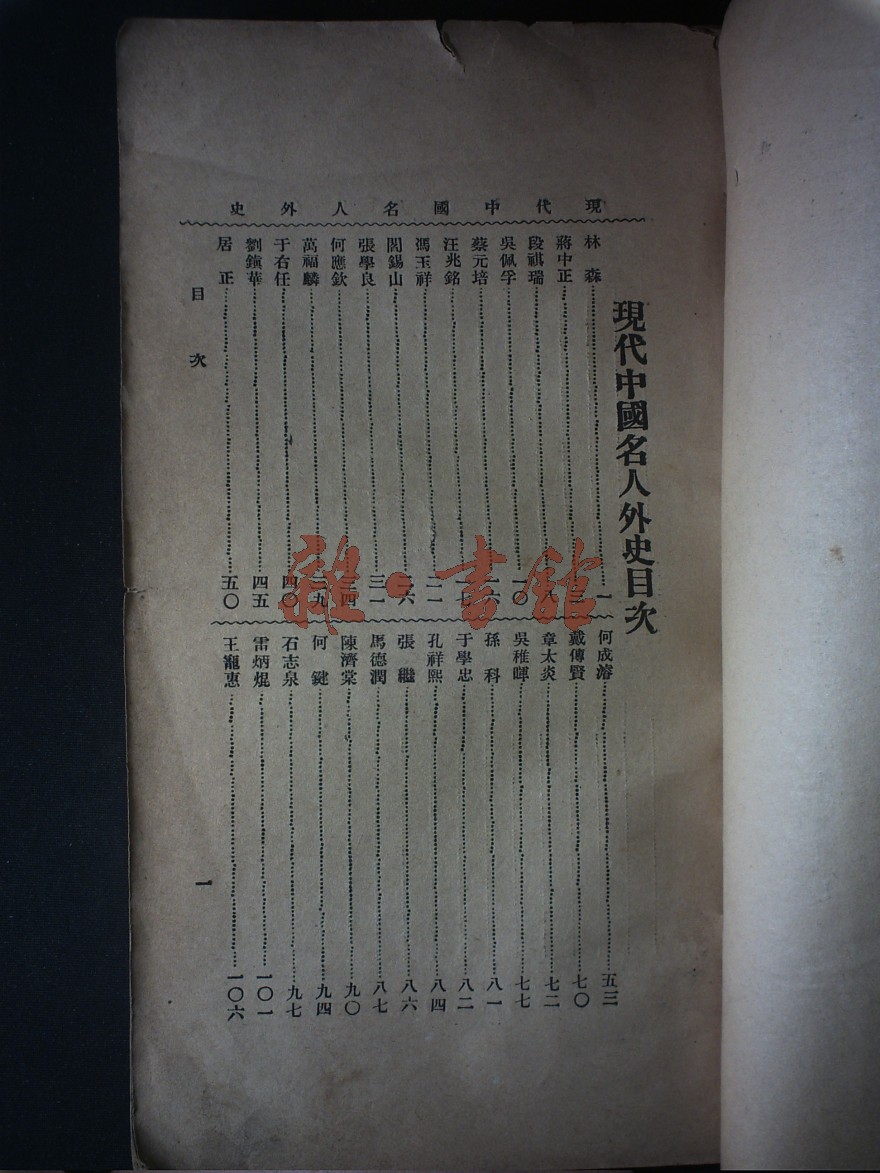 現代中國名人外史
現代中國名人外史目次
林森……一
蔣中正……三
段祺瑞……八
吳佩孚……一〇
蔡元培……一六
汪兆銘……一七
馮玉祥……二一
閻錫山……二六
張學良……三一
何應欽……三四
萬福麟……三九
于右任……四〇
劉鎭華……四五
居正……五〇
何成濬……五三
戴傳賢……七〇
章太炎……七二
吳稚暉……七七
孫科……八一
于學忠……八二
孔祥熙……八四
張繼……八六
馬德潤……八七
陳濟棠……九〇
何鍵……九四
石志泉……九七
雷炳焜……一〇一
王寵惠……一〇六
目次
一
雜·書館